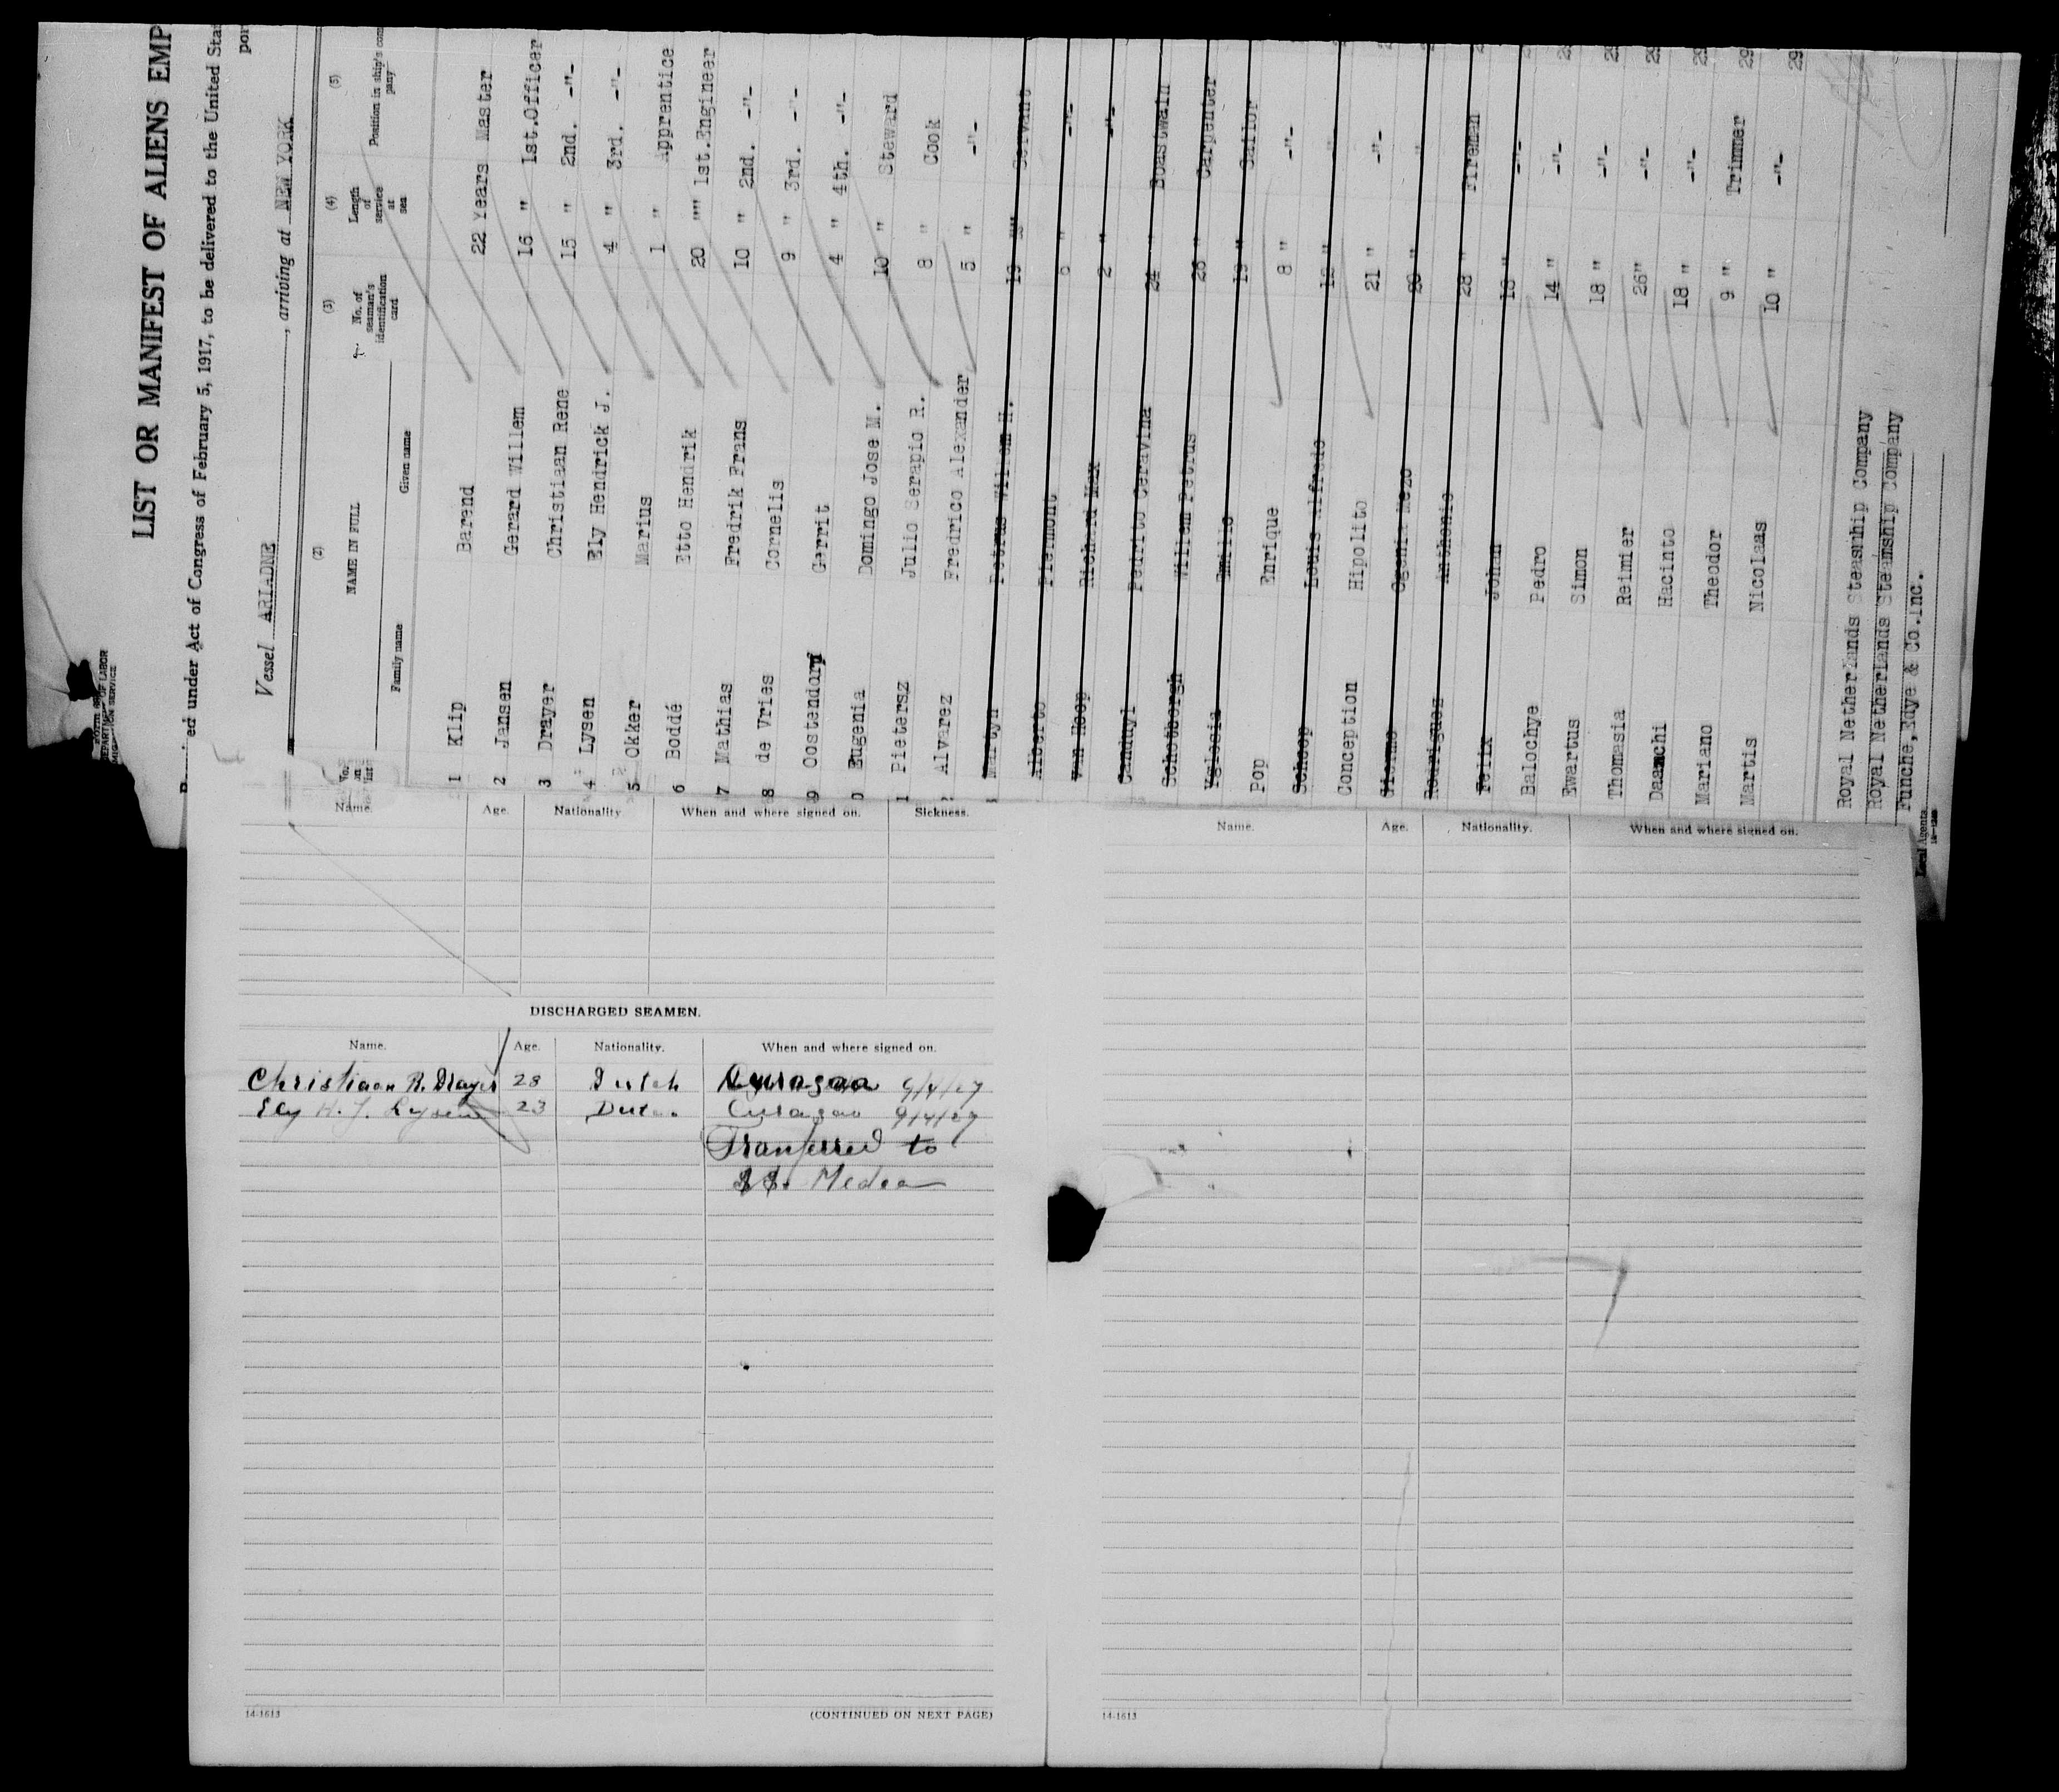 LIST OR MANIFEST OF ALIENS EMP
ed under Act of Congress of February 5, 1917, to be delivered to the United Sta
por
Vessel ARIADNE, arriving at NEW YORK
(2) (3) (4) (5)
NAME IN FULL No. of seaman's identification card Length of service at sea Position in ship's com pany
Family name Given name
1 Klip Barend 22 Years Master
2 Jansen Gerard Willem 16 " 1st.Officer
3 Drayer Christiaan Rene 15 " 2nd. -"-
4 Lysen Ely Hendrick J. 4 " 3rd. -"-
5 Okker Marius 1 " Apprentice
6 Boddé Etto Hendrik 20 "" 1st.Engineer
7 Mathias Fredrik Frans 10 " 2nd. -"-
8 de Vries Cornelis 9 " 3rd. -"-
9 Oostendorp Gerrit 4 " 4th. -"-
0 Eugenia Domingo Jose M. 10 " Steward
1 Pietersz Julio Serapio R. 8 " Cook
Alvarez Fredrico Alexander 5 " -"-
Martyn Petrus Willem H. 19 " Servant
Alberto Piermont 6 " -"-
Van Hoop Richard Max 2 " -"-
Pedrito Ceravina 24 " Boastwain
Schotborgh Willem Petrus 26 " Carpenter
Yglesia Emilio 19 " Sailor
Pop Enrique 8 " -"-
Schoop Louis Alfredo "
Conception Hipolito 21 " -"-
"
Rodriguez Anthonio 28 " Fireman
Felix Johan " -"-
Balochye Pedro 14 " -"-
Ewartus Simon 18 " -"-
Thomasia Reimier 26" -"-
Daamchi Hacinto 18 " -"-
Mariano Theodor 9 " Trimmer
Martis Nicolaas 10 " -"-
Royal Netherlands Steamship Company
Royal Netherlands Steamship Company
Funche, Edye & Co.Inc.
Local Agents.
Name. Age. Nationality When and where signed on. Sickness.
DISCHARGED SEAMEN.
Name. Age. Nationality. When and where signed on.
Christiaan R. Drayer 28 Dutch Curaçao 9/4/27
Ely H. J. Lysen 23 Dutch Curaçao 9/4/27
Tranferred to
S.S. Medea
14-1613 (CONTINUED ON NEXT PAGE)
Name. Age. Nationality. When and where signed on.
14-1613